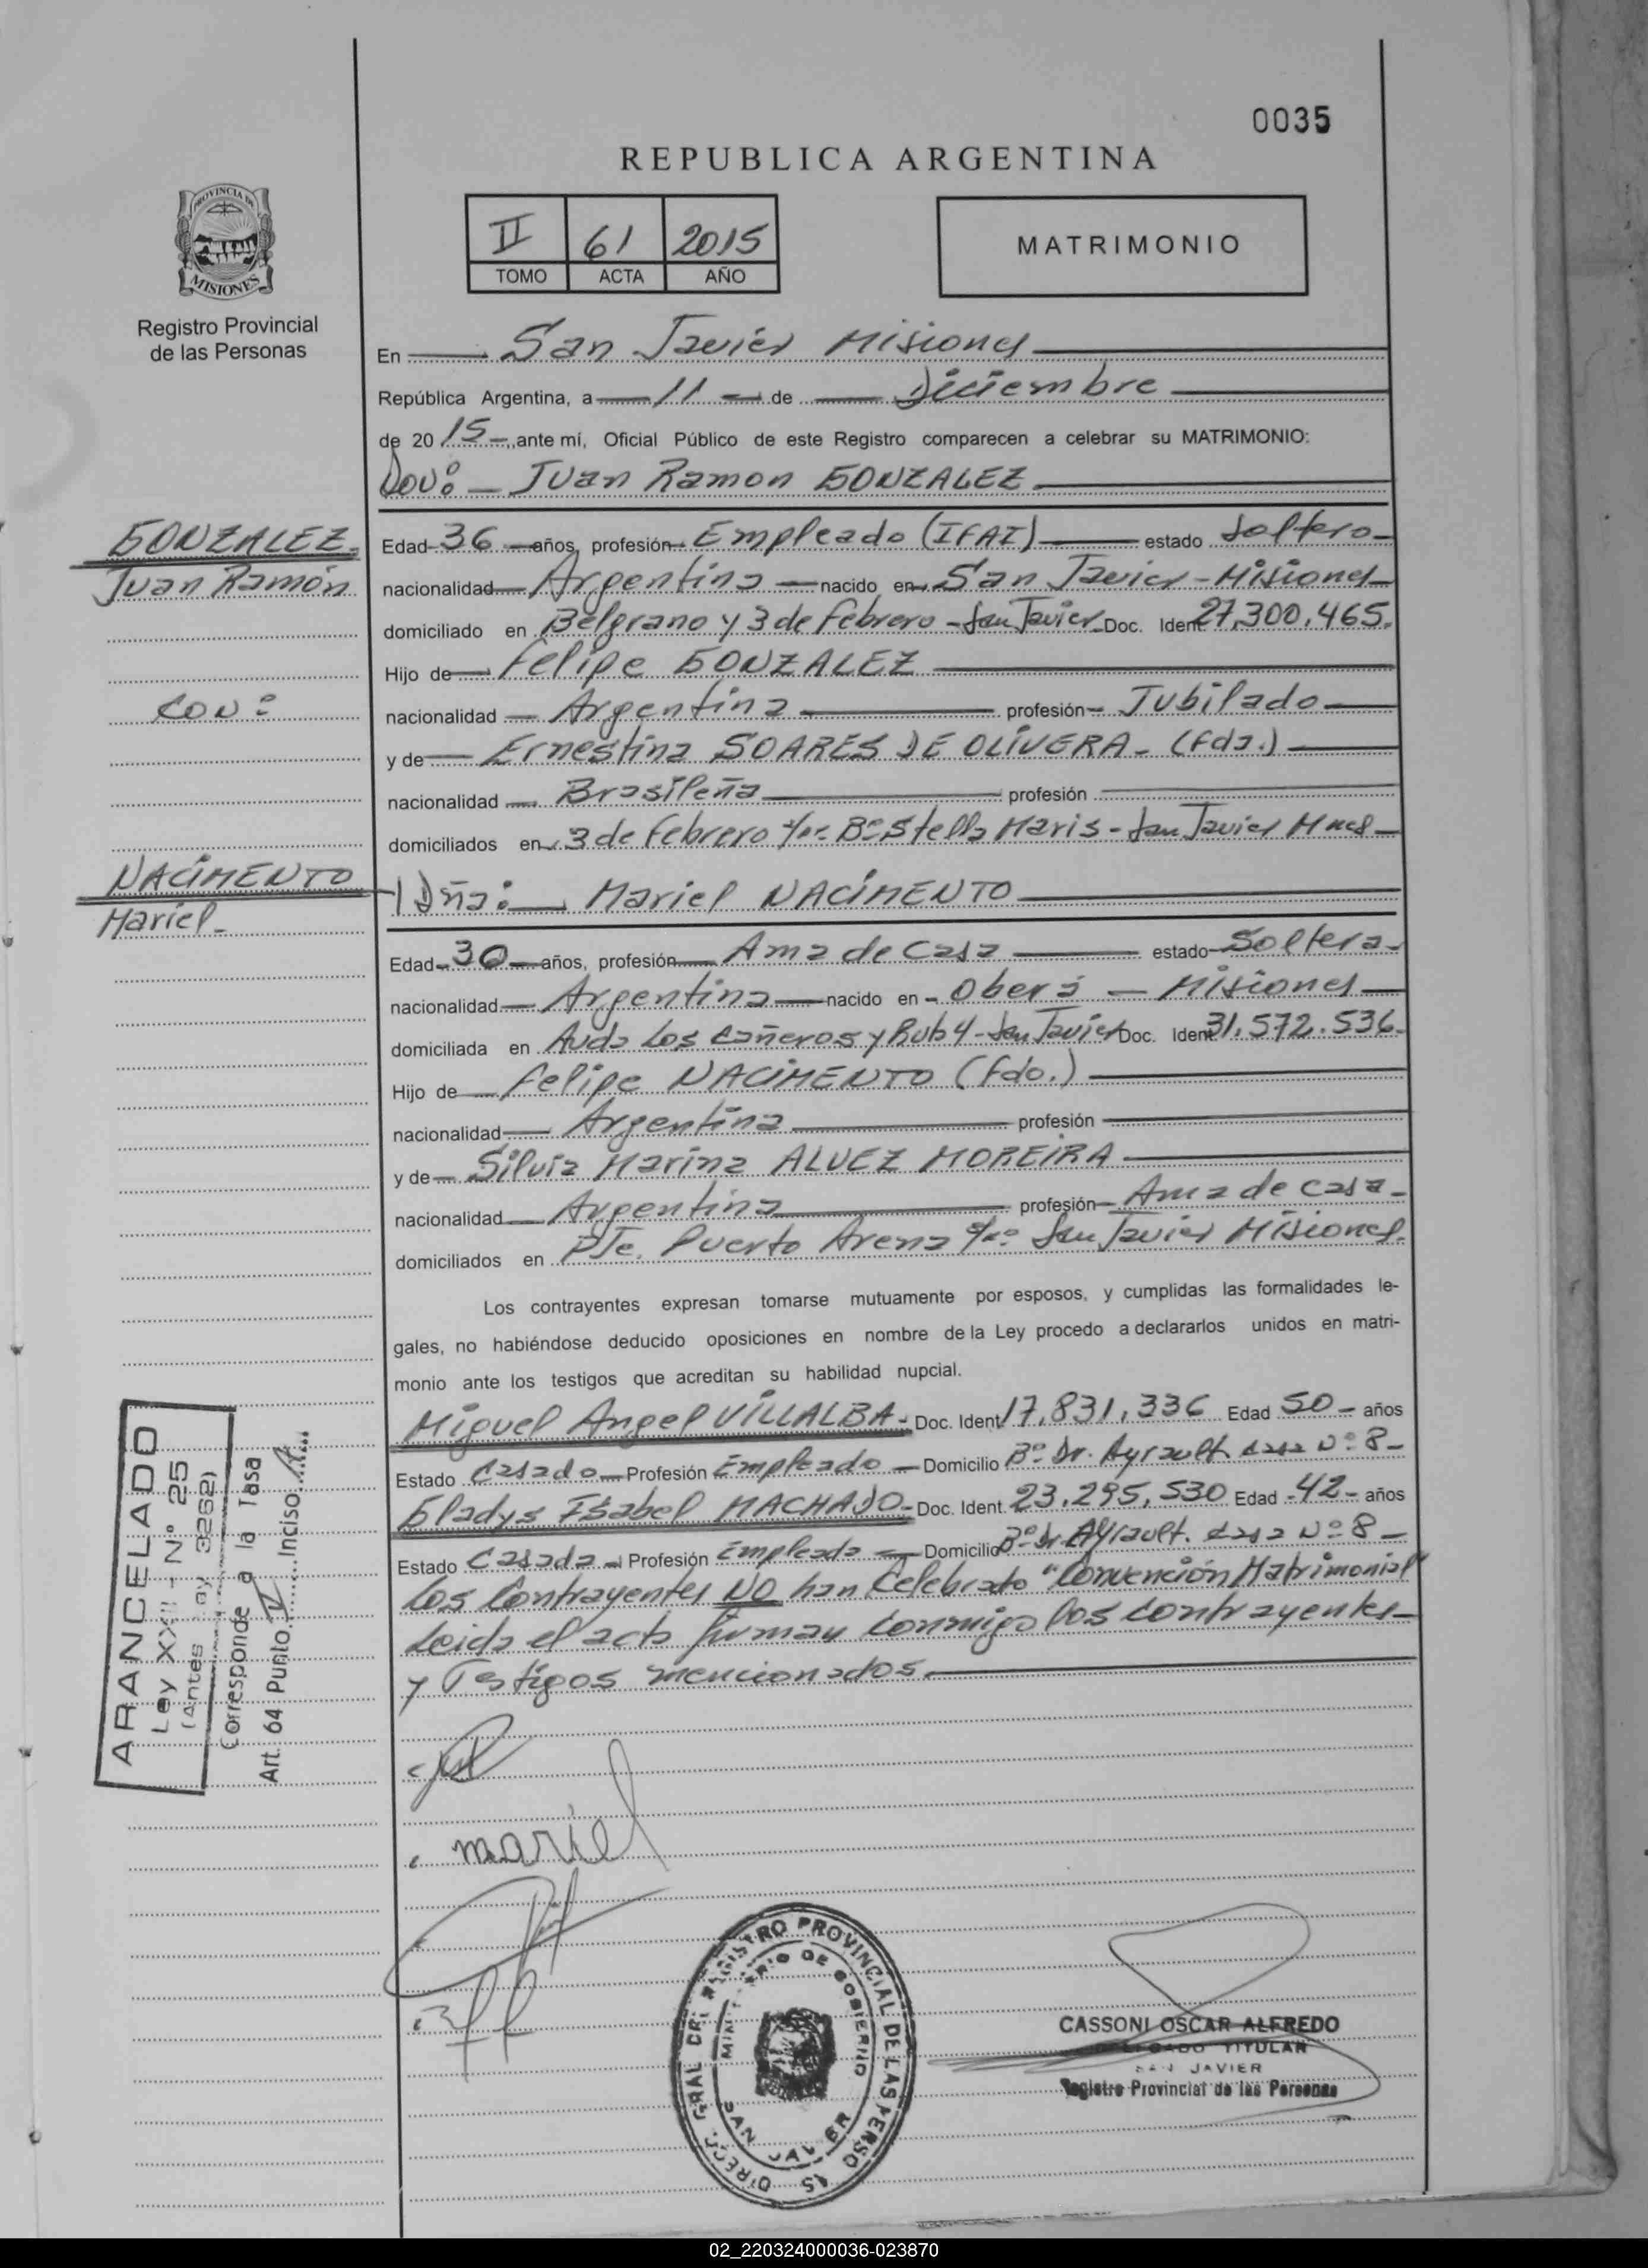 0035
REPUBLICA ARGENTINA
PROVINCIA DE
MISIONES
Registro Provincial
de las Personas
II 61 2015
TOMO ACTA AÑO
MATRIMONIO
En San Javier Misiones
República Argentina, a 11 de Diciembre
de 2015, ante mi, Oficial Público de este Registro comparecen a celebrar su MATRIMONIO:
Don: Juan Ramon GONZALEZ
GONZALEZ
Juan Ramón
con:
NACIMENTO
Mariel
Edad 36 años, profesión Empleado (IFAI) estado Soltero
nacionalidad Argentina nacido en San Javier - Misiones
domiciliado en Belgrano y 3 de Febrero - San Javier Doc. Ident. 27.300.465.
Hijo de Felipe GONZALEZ
nacionalidad Argentina profesión Jubilado
y de Ernestina SOARES DE OLIVERA - (fda.)
nacionalidad Brasileña profesión
domiciliados en 3 de Febrero Bº Stella Maris - San Javier Mnes
Dña: Mariel NACIMENTO
Edad 30 años, profesión Ama de Casa estado Soltera
nacionalidad Argentina nacido en Oberá - Misiones
domiciliada en Avda Los Cañeros y Rub 4 - San Javier Doc. Ident 31.572.536.
Hijo de Felipe NACIMENTO (fdo.)
nacionalidad Argentina profesión
y de Silvia Marina ALVEZ MOREIRA
nacionalidad Argentina profesión Ama de casa
domiciliados en Pje. Puerto Arena San Javier Misiones.
Los contrayentes expresan tomarse mutuamente por esposos, y cumplidas las formalidades le-
gales, no habiéndose deducido oposiciones en nombre de la Ley procedo a declararlos unidos en matri-
monio ante los testigos que acreditan su habilidad nupcial.
Miguel Angel VILLALBA Doc. Ident 17.831.336 Edad 50 años
Estado Casado Profesión Empleado Domicilio Bº Dr. Ayrault casa Nº 8
Gladys Isabel MACHADO Doc. Ident. 23.295.530 Edad 42 años
Estado Casada Profesión Empleada Domicilio Bº Dr Ayrault. casa Nº 8
Los Contrayentes NO han Celebrado "Convención Matrimonial"
Leida el acta firman conmigo los contrayentes
y Testigos mencionados.
ARANCELADO
Ley XXII - Nº 25
(Antes Ley 3262)
Corresponde a la Tasa
Art. 64 Punto Inciso
mariel
REGISTRO PROVINCIAL DE LAS
DE GOBIERNO
SAN
CASSONI OSCAR ALFREDO
TITULAR
SAN JAVIER
Registro Provincial de las Personas
02_220324000036-023870